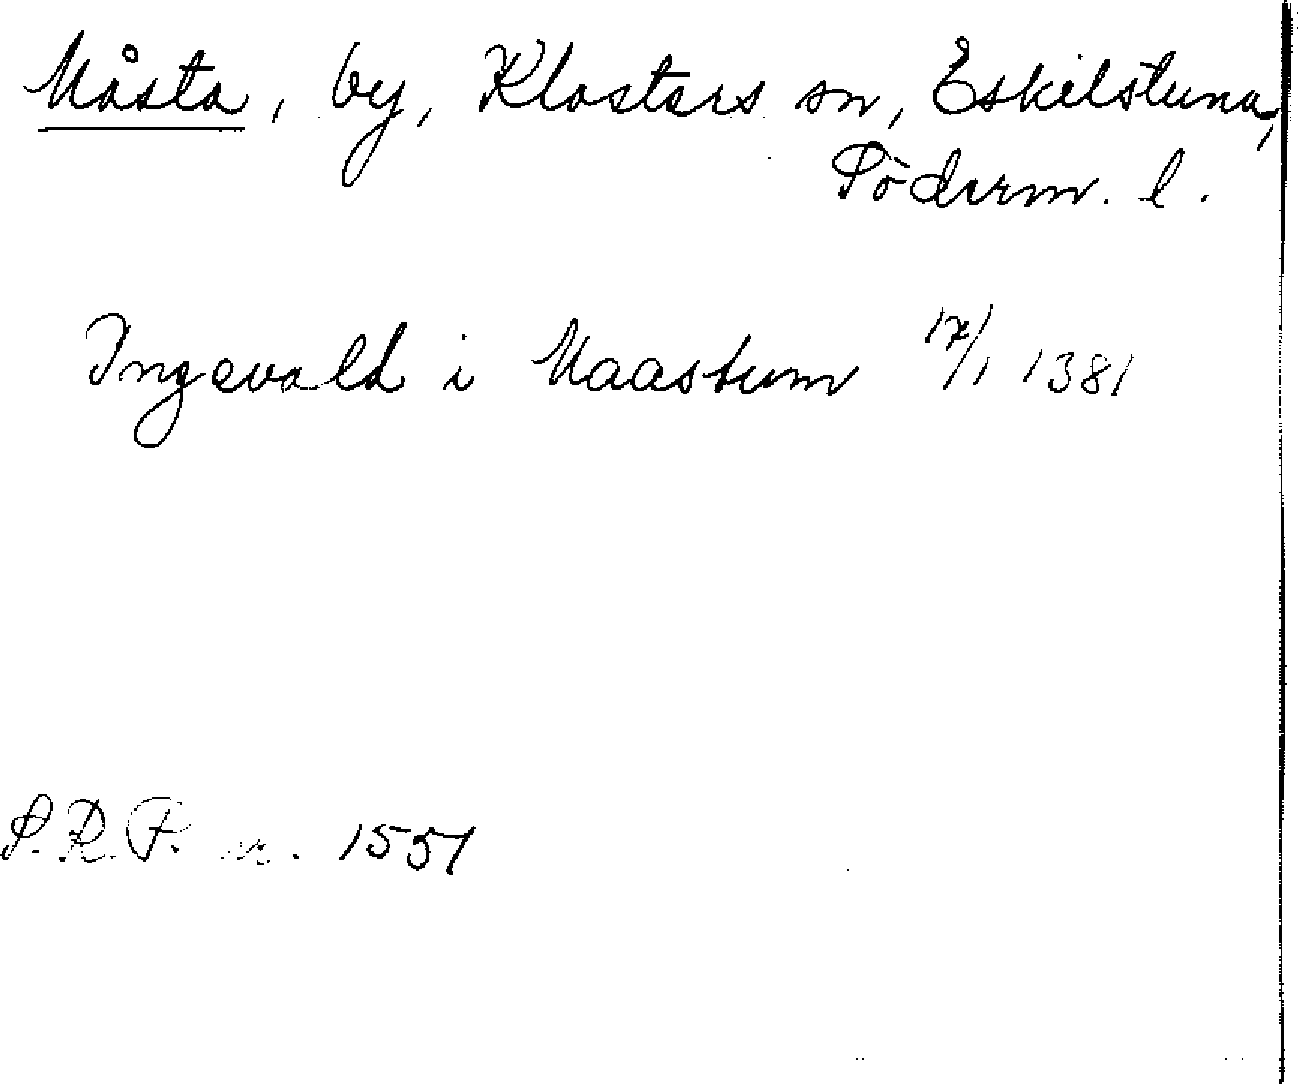 Måsta, by, Klosters sn, Eskilstuna,
Söderm. l.
Ingevald i Maastum 17/1 1381
S.R.P. nr. 1551